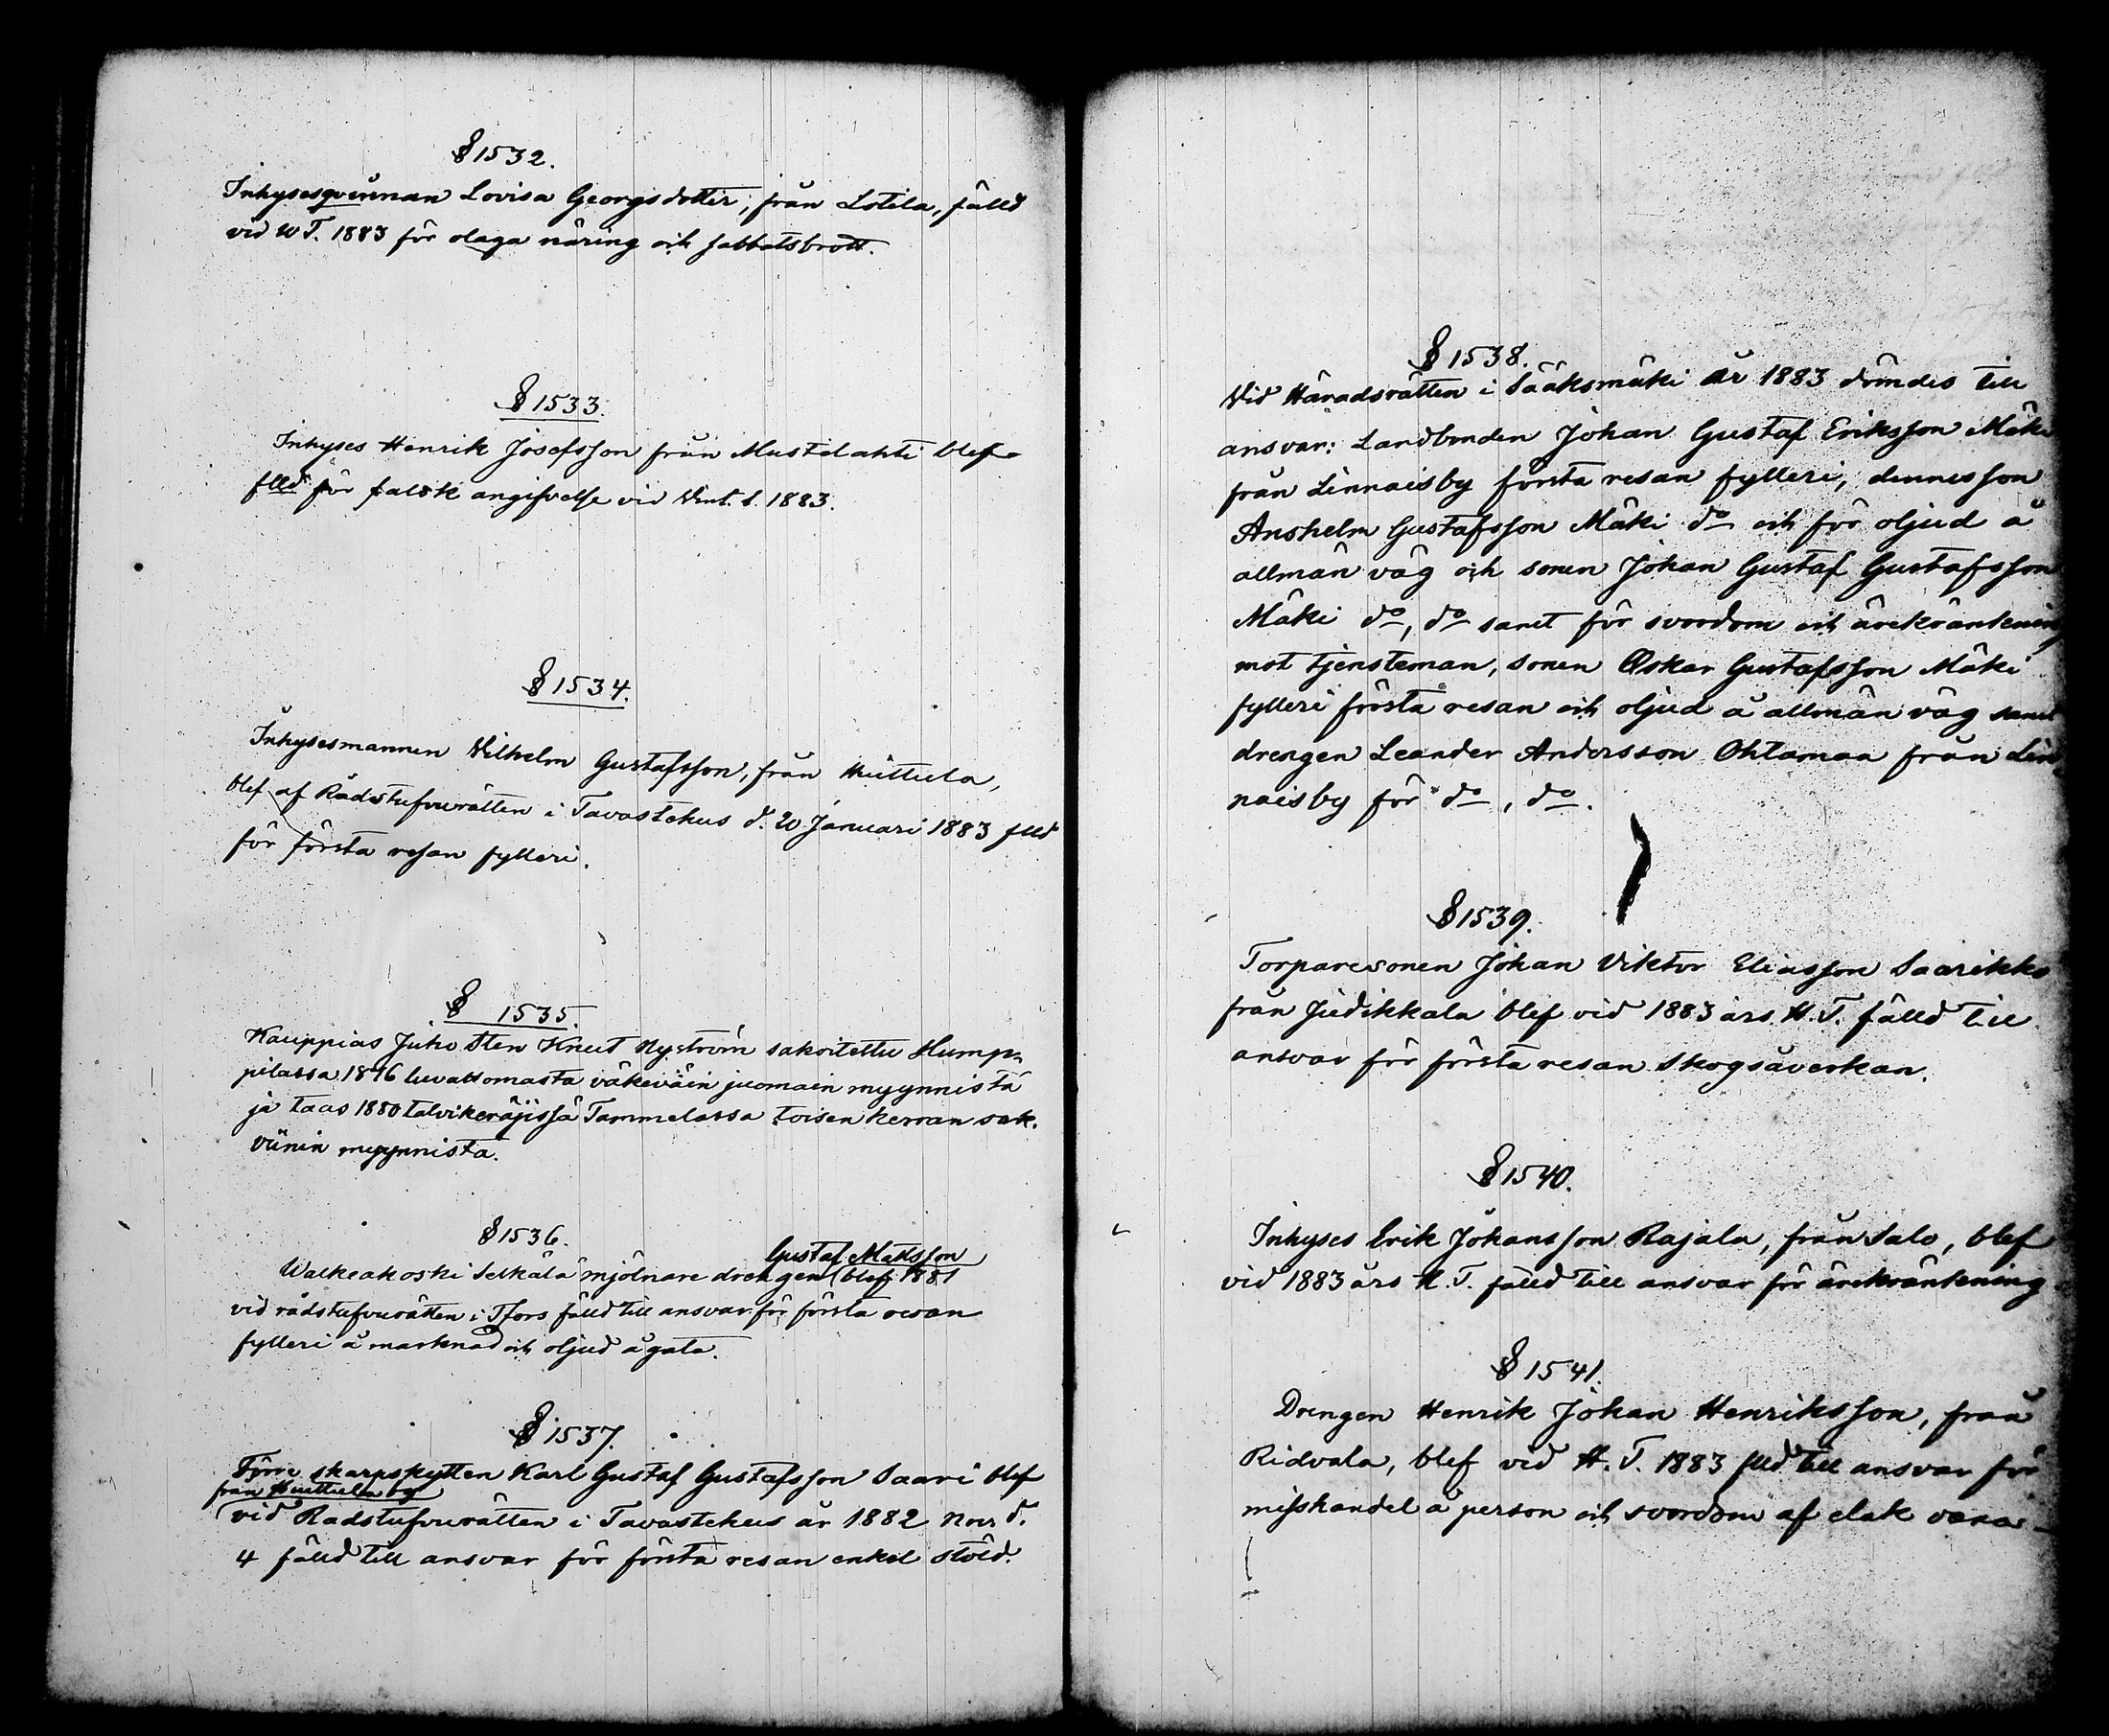 § 1532.
Inhysesqvinnan Lovisa Georgsdotter, från Lotila, fälld
vid W T. 1883 för olaga näring och sabbatsbrott.
§ 1533.
Inhyses Henrik Josefsson från Mustelahti blef
flld för falsk angifvelse vid Vint. t. 1883.
§ 1534.
Inhysesmannen Vilhelm Gustafsson, från Huittula,
blef af Rådstufvurätten i Tavastehus d. 20 Januari 1883 flld
för första resan fylleri.
§ 1535.
Kauppias Juho Sten Knut Nyström sakoitettu Hump-
pilassa 1876 luvattomasta väkeväin juomain myynnistä
ja taas 1880 talvikeräjissä Tammelassa toisen kerran sak.
viinin myynnistä.
§ 1536.
Gustaf Mattsson
Walkeakoski Selkälä mjölnare drengen (blef 1881
vid rådstufvurätten i Tfors fälld till ansvar för första resan
fylleri å marknad och oljud å gata.
§ 1537.
Förre skarpskytten Karl Gustaf Gustafsson Saari blef
från Huittula by
(vid Rådstufvurätten i Tavastehus år 1882 Nov. d.
4 fälld till ansvar för första resan enkel stöld.
§ 1538.
Vid Häradsrätten i Sääksmäki år 1883 dömdes till
ansvar: Landbonden Johan Gustaf Eriksson Mäki
från Linnaisby första resan fylleri, dennes son
Anshelm Gustafsson Mäki do och för oljud å
allmän väg och sonen Johan Gustaf Gustafsson
Mäki do, do samt för svordom och ärekränkning
mot tjensteman, sonen Oskar Gustafsson Mäki
fylleri första resan och oljud å allmän väg samt
drengen Leander Andersson Ohtamaa från Lin-
naisby för do, do.
§ 1539.
Torparesonen Johan Viktor Eliasson Saarikko
från Judikkala blef vid 1883 års H. T. fälld till
ansvar för första resan skogsåverkan.
§ 1540.
Inhyses Erik Johansson Rajala, från Salo, blef
vid 1883 års H. T. fälld till ansvar för ärekränkning
§ 1541.
Drengen Henrik Johan Henriksson, från
Ridvala, blef vid H. T. 1883 flld till ansvar för
misshandel å person och svordom af elak vana